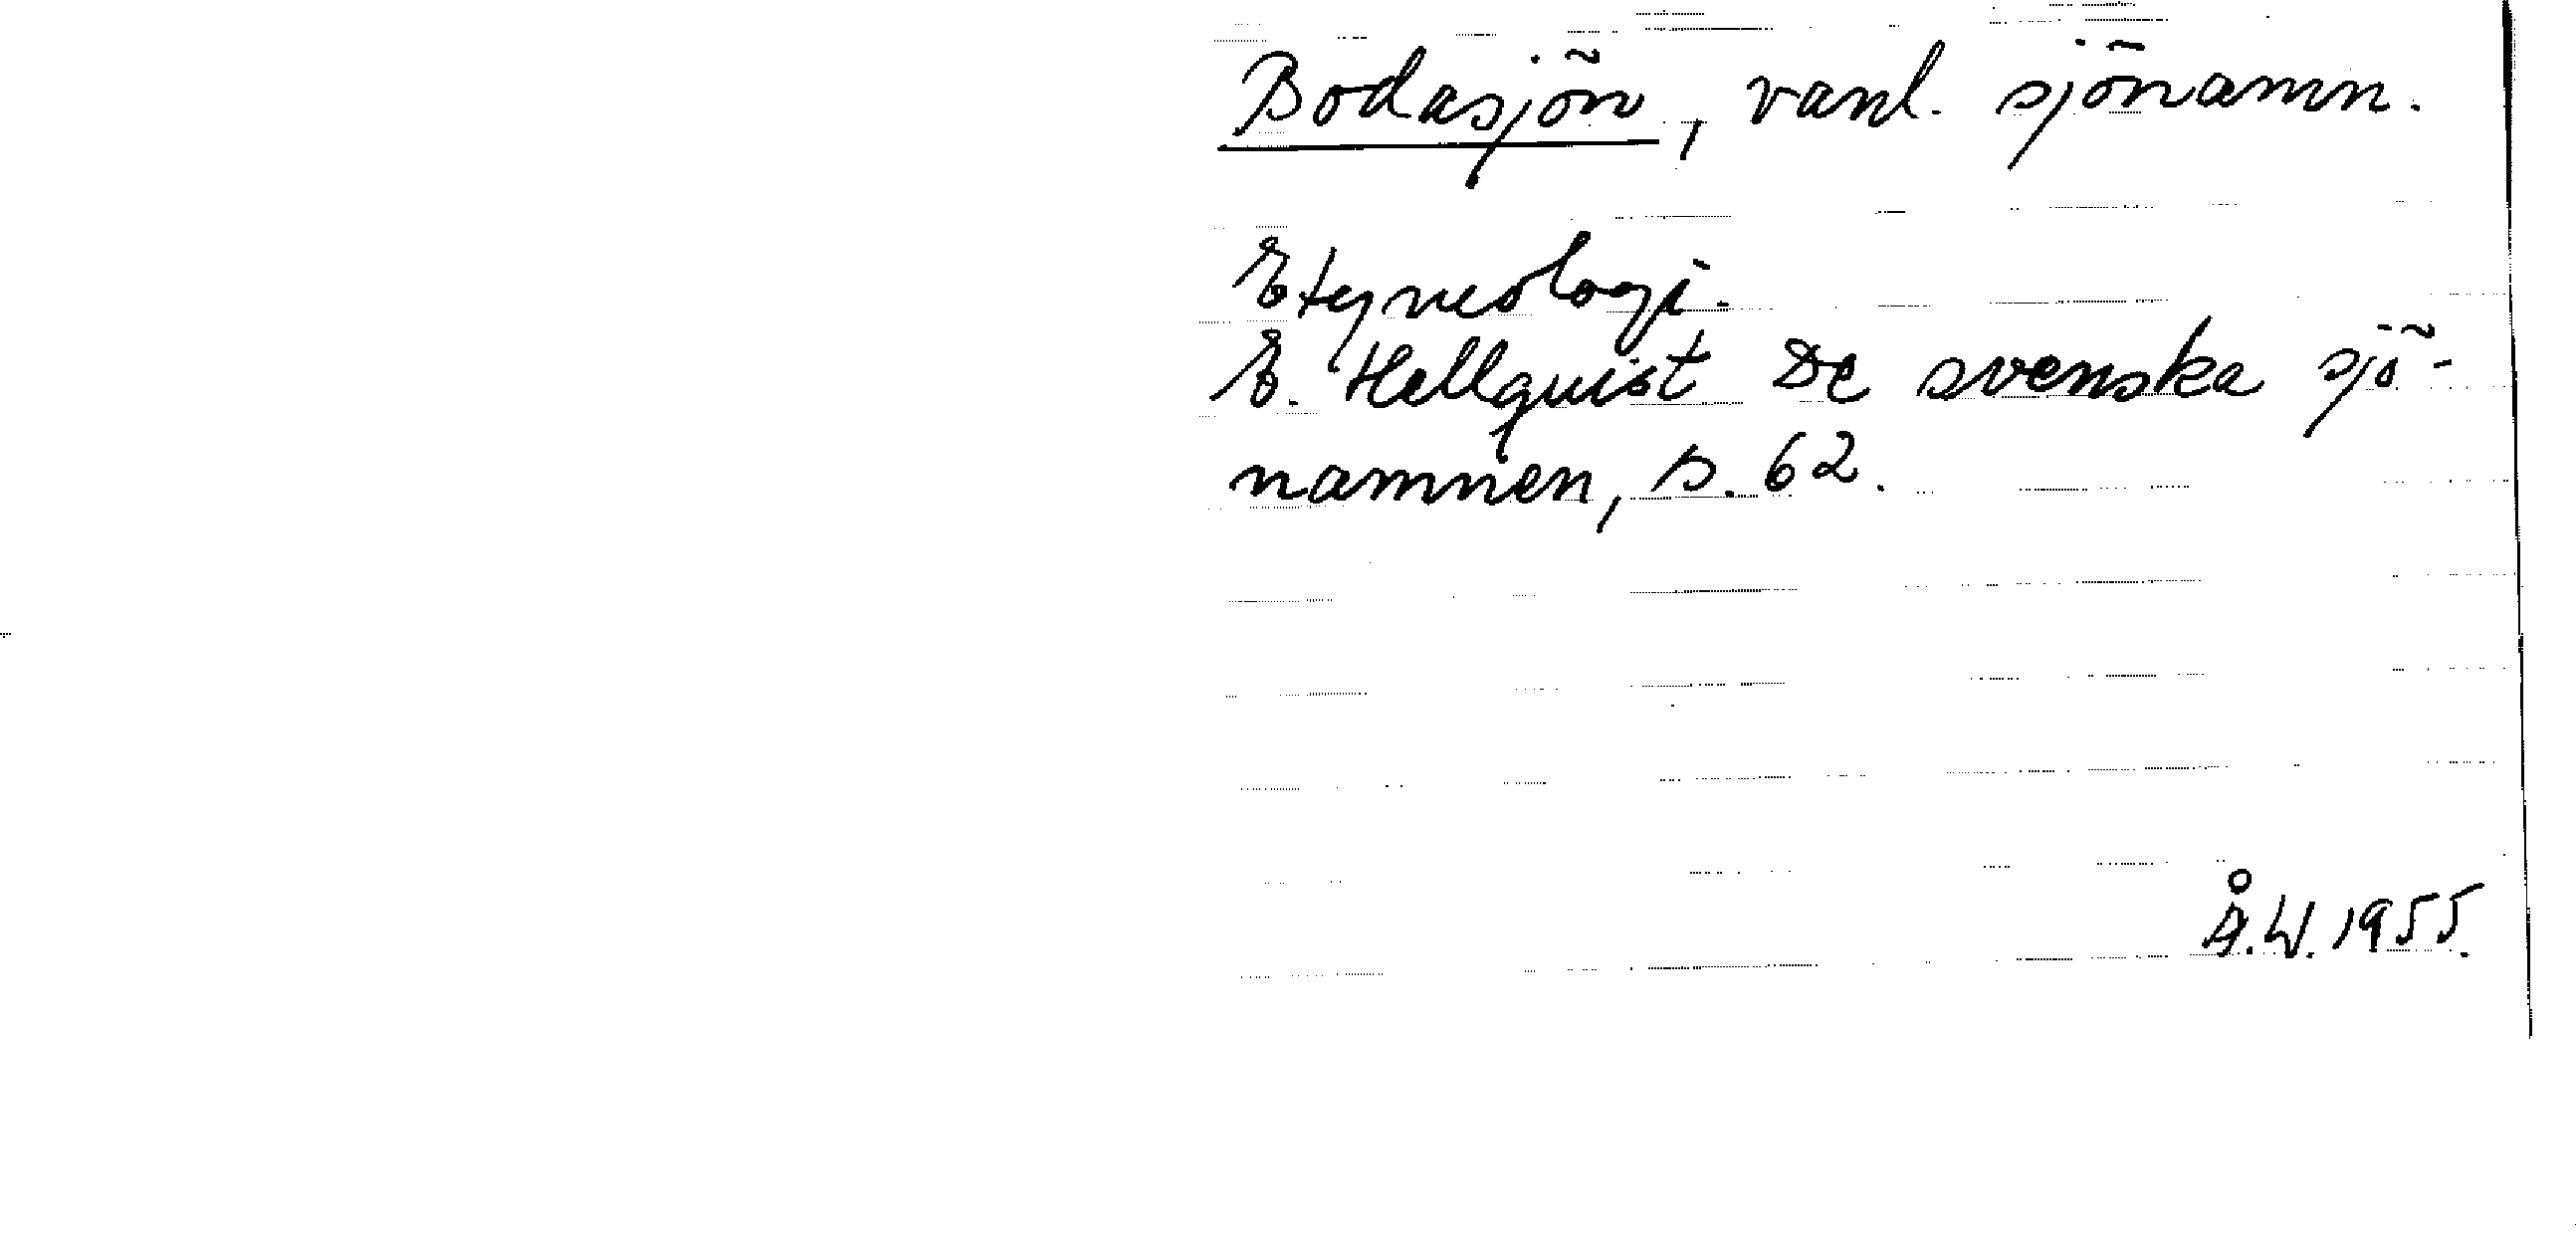 Bodasjön, vanl. sjönamn.
Etymologi.
E. Hellquist De svenska sjö-
namnen, s. 62.
Å.W. 1955.